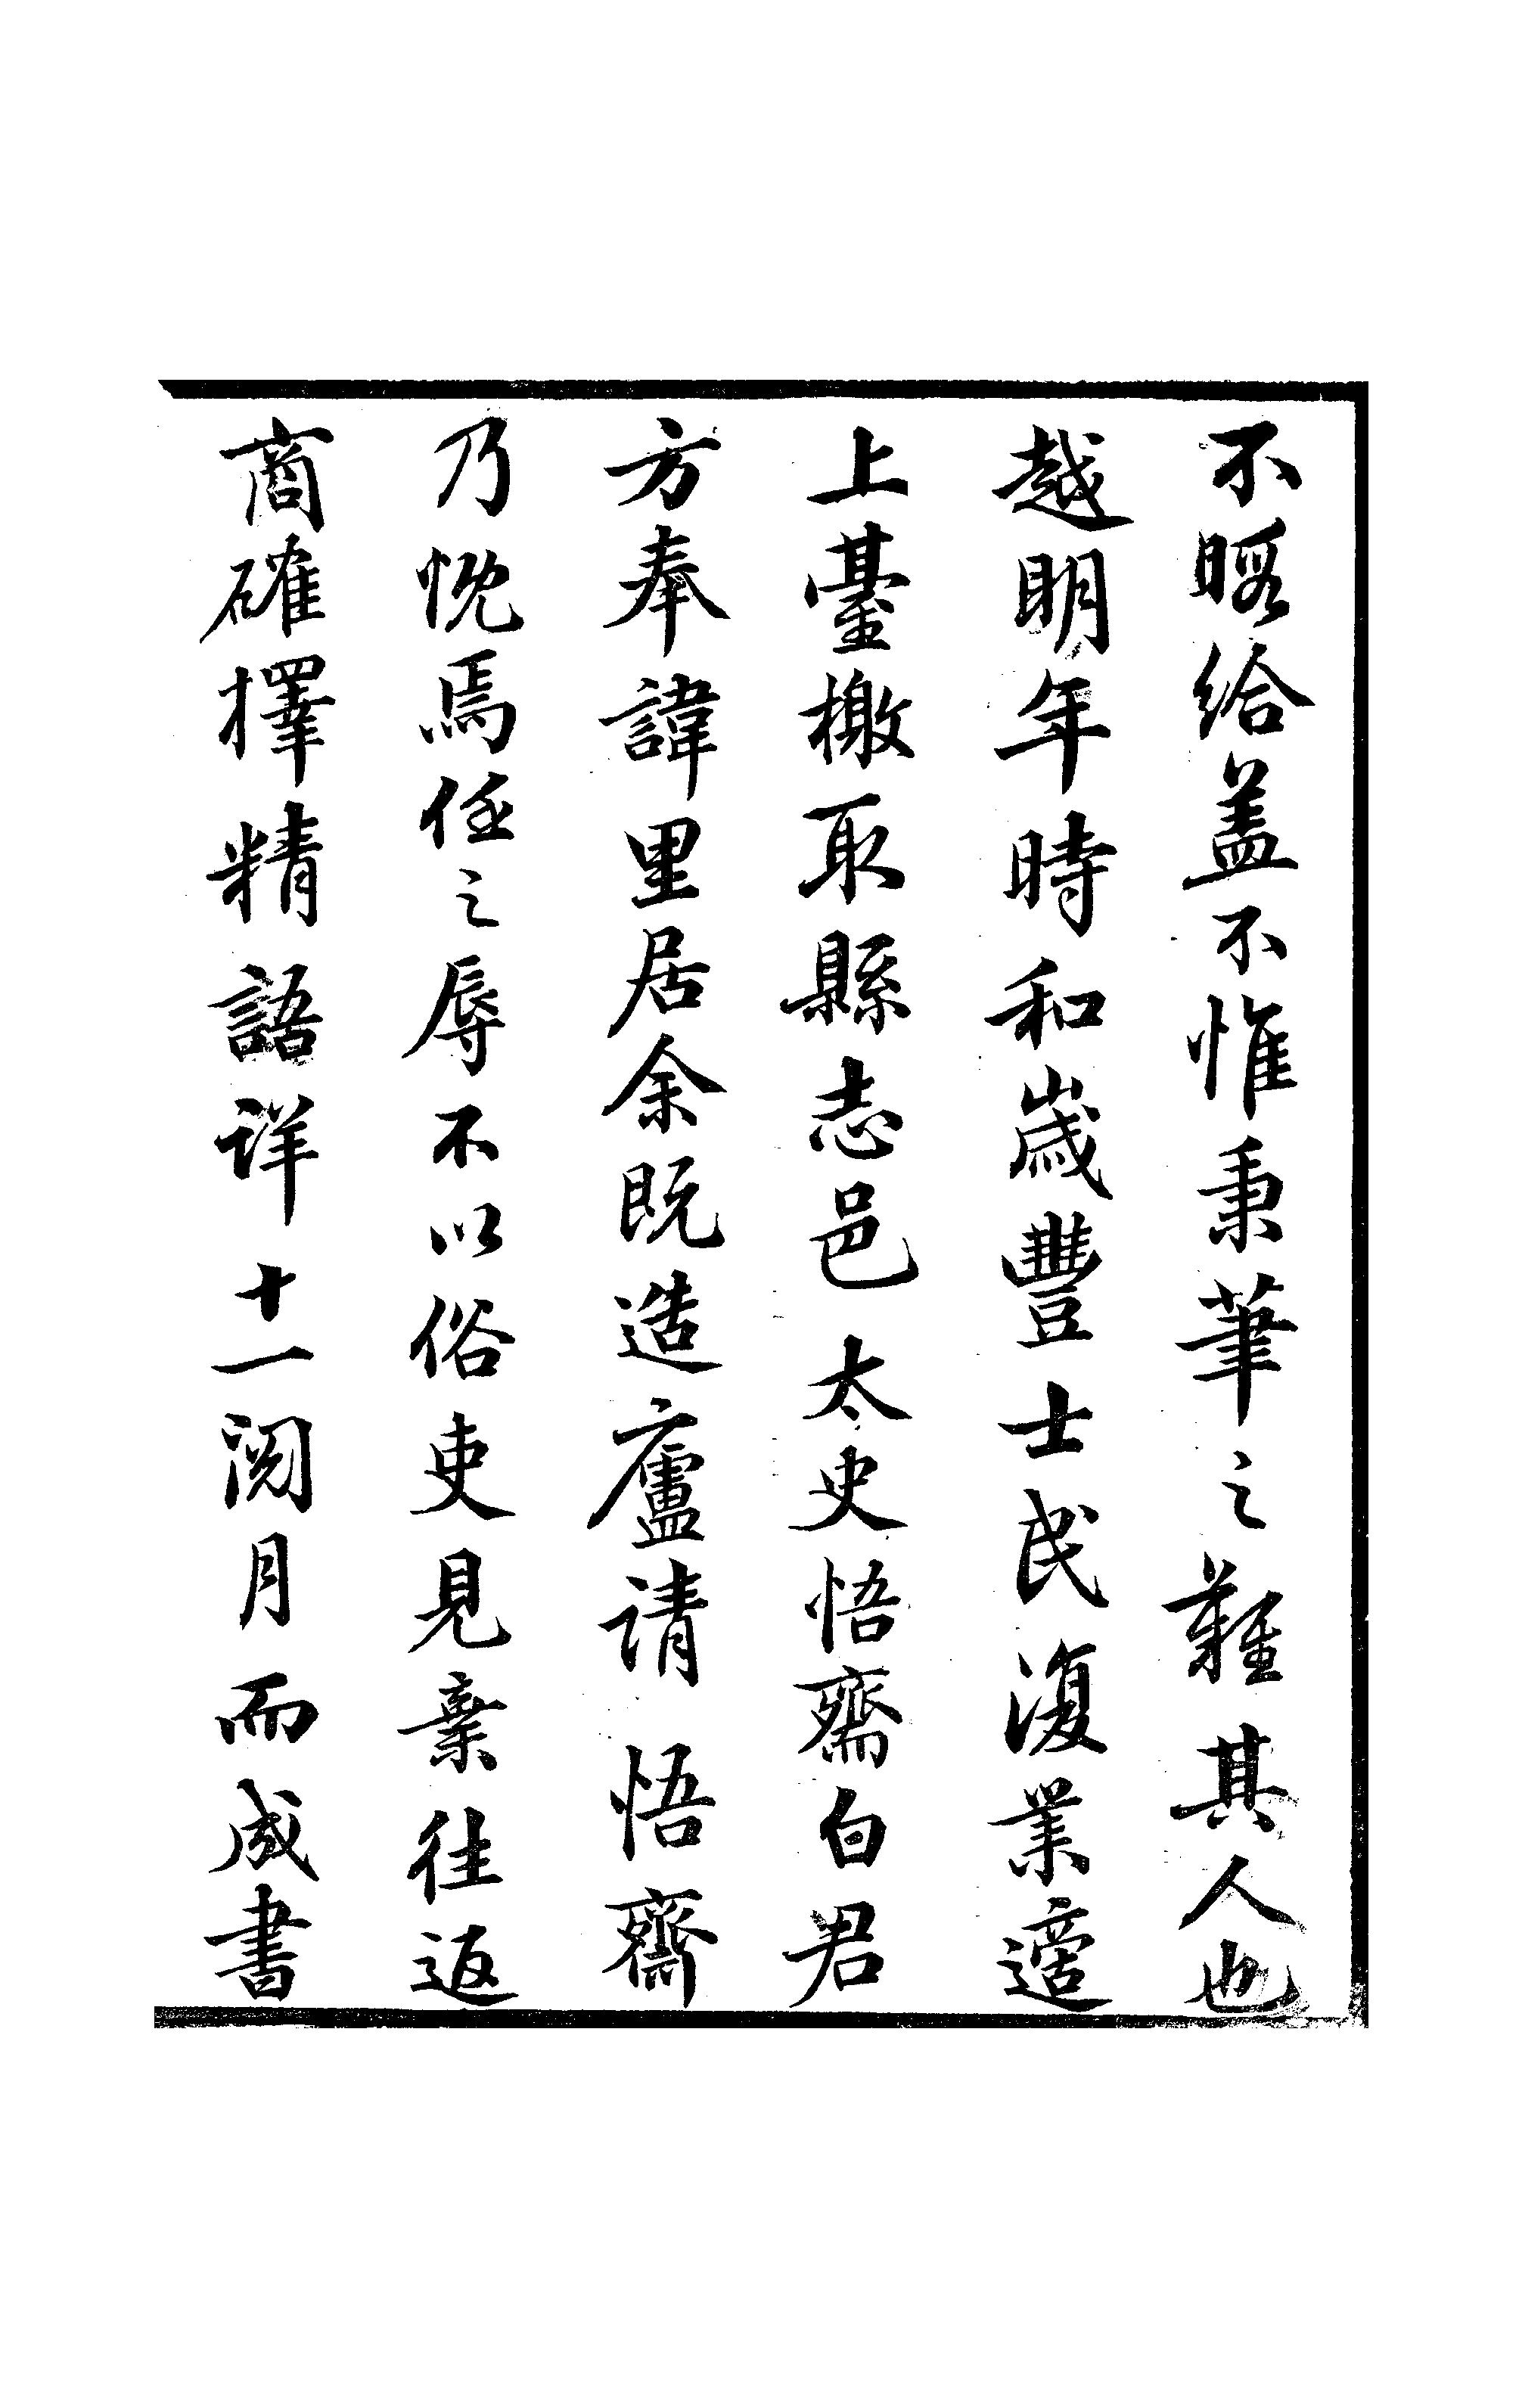 不暇給盖不惟秉筆之難其人也
越明年時和歲豐士民復業適
上臺檄取縣志邑太史悟齋白君
方奉諱里居余既造廬請悟齋
乃悅焉任之辱不以俗吏見棄往返
商確擇精語詳十一閱月而成書